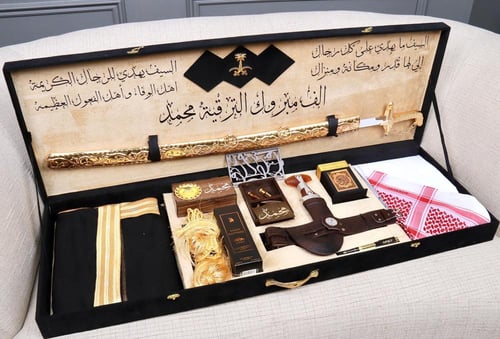 السيف ما يهدى على كل رجال
اللي لها قدر ومكانة ومنزال
السيف يهدى للرجال الكريمة
أهل الوفاء وأهل الفعول العظيمة
ألف مبروك الترقية محمد
محمد
محمد